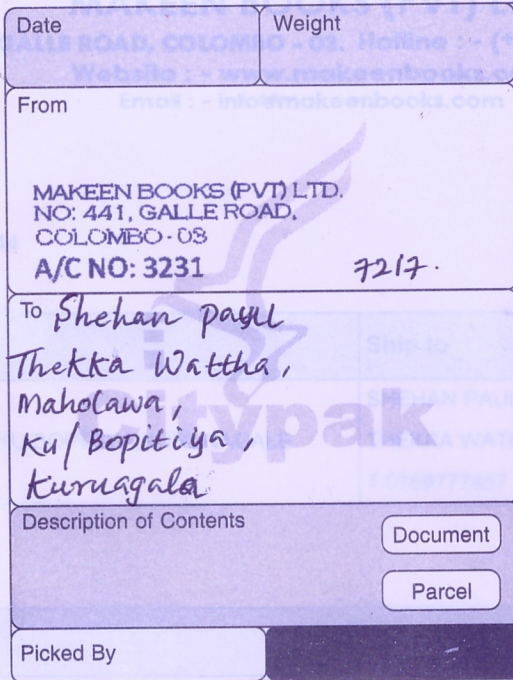 Date
Weight
From
MAKEEN BOOKS (PVT) LTD.
NO: 441, GALLE ROAD,
COLOMBO - 03
A/C NO: 3231
7217.
To Shehan payl
Thekka Wattha,
Maholawa,
Ku/Bopitiya,
Kuruagala
Citypak
Description of Contents
Document
Parcel
Picked By